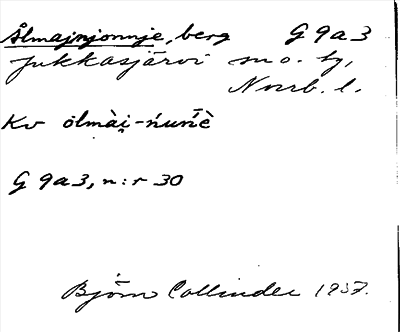 Ålmajnjonnje, berg G 9 a 3
Jukkasjärvi sn o. by,
Norrb. l.
Kv ōlmài̭-ńuńi̅è
G 9 a 3, n:r 30
Björn Collinder 1937.